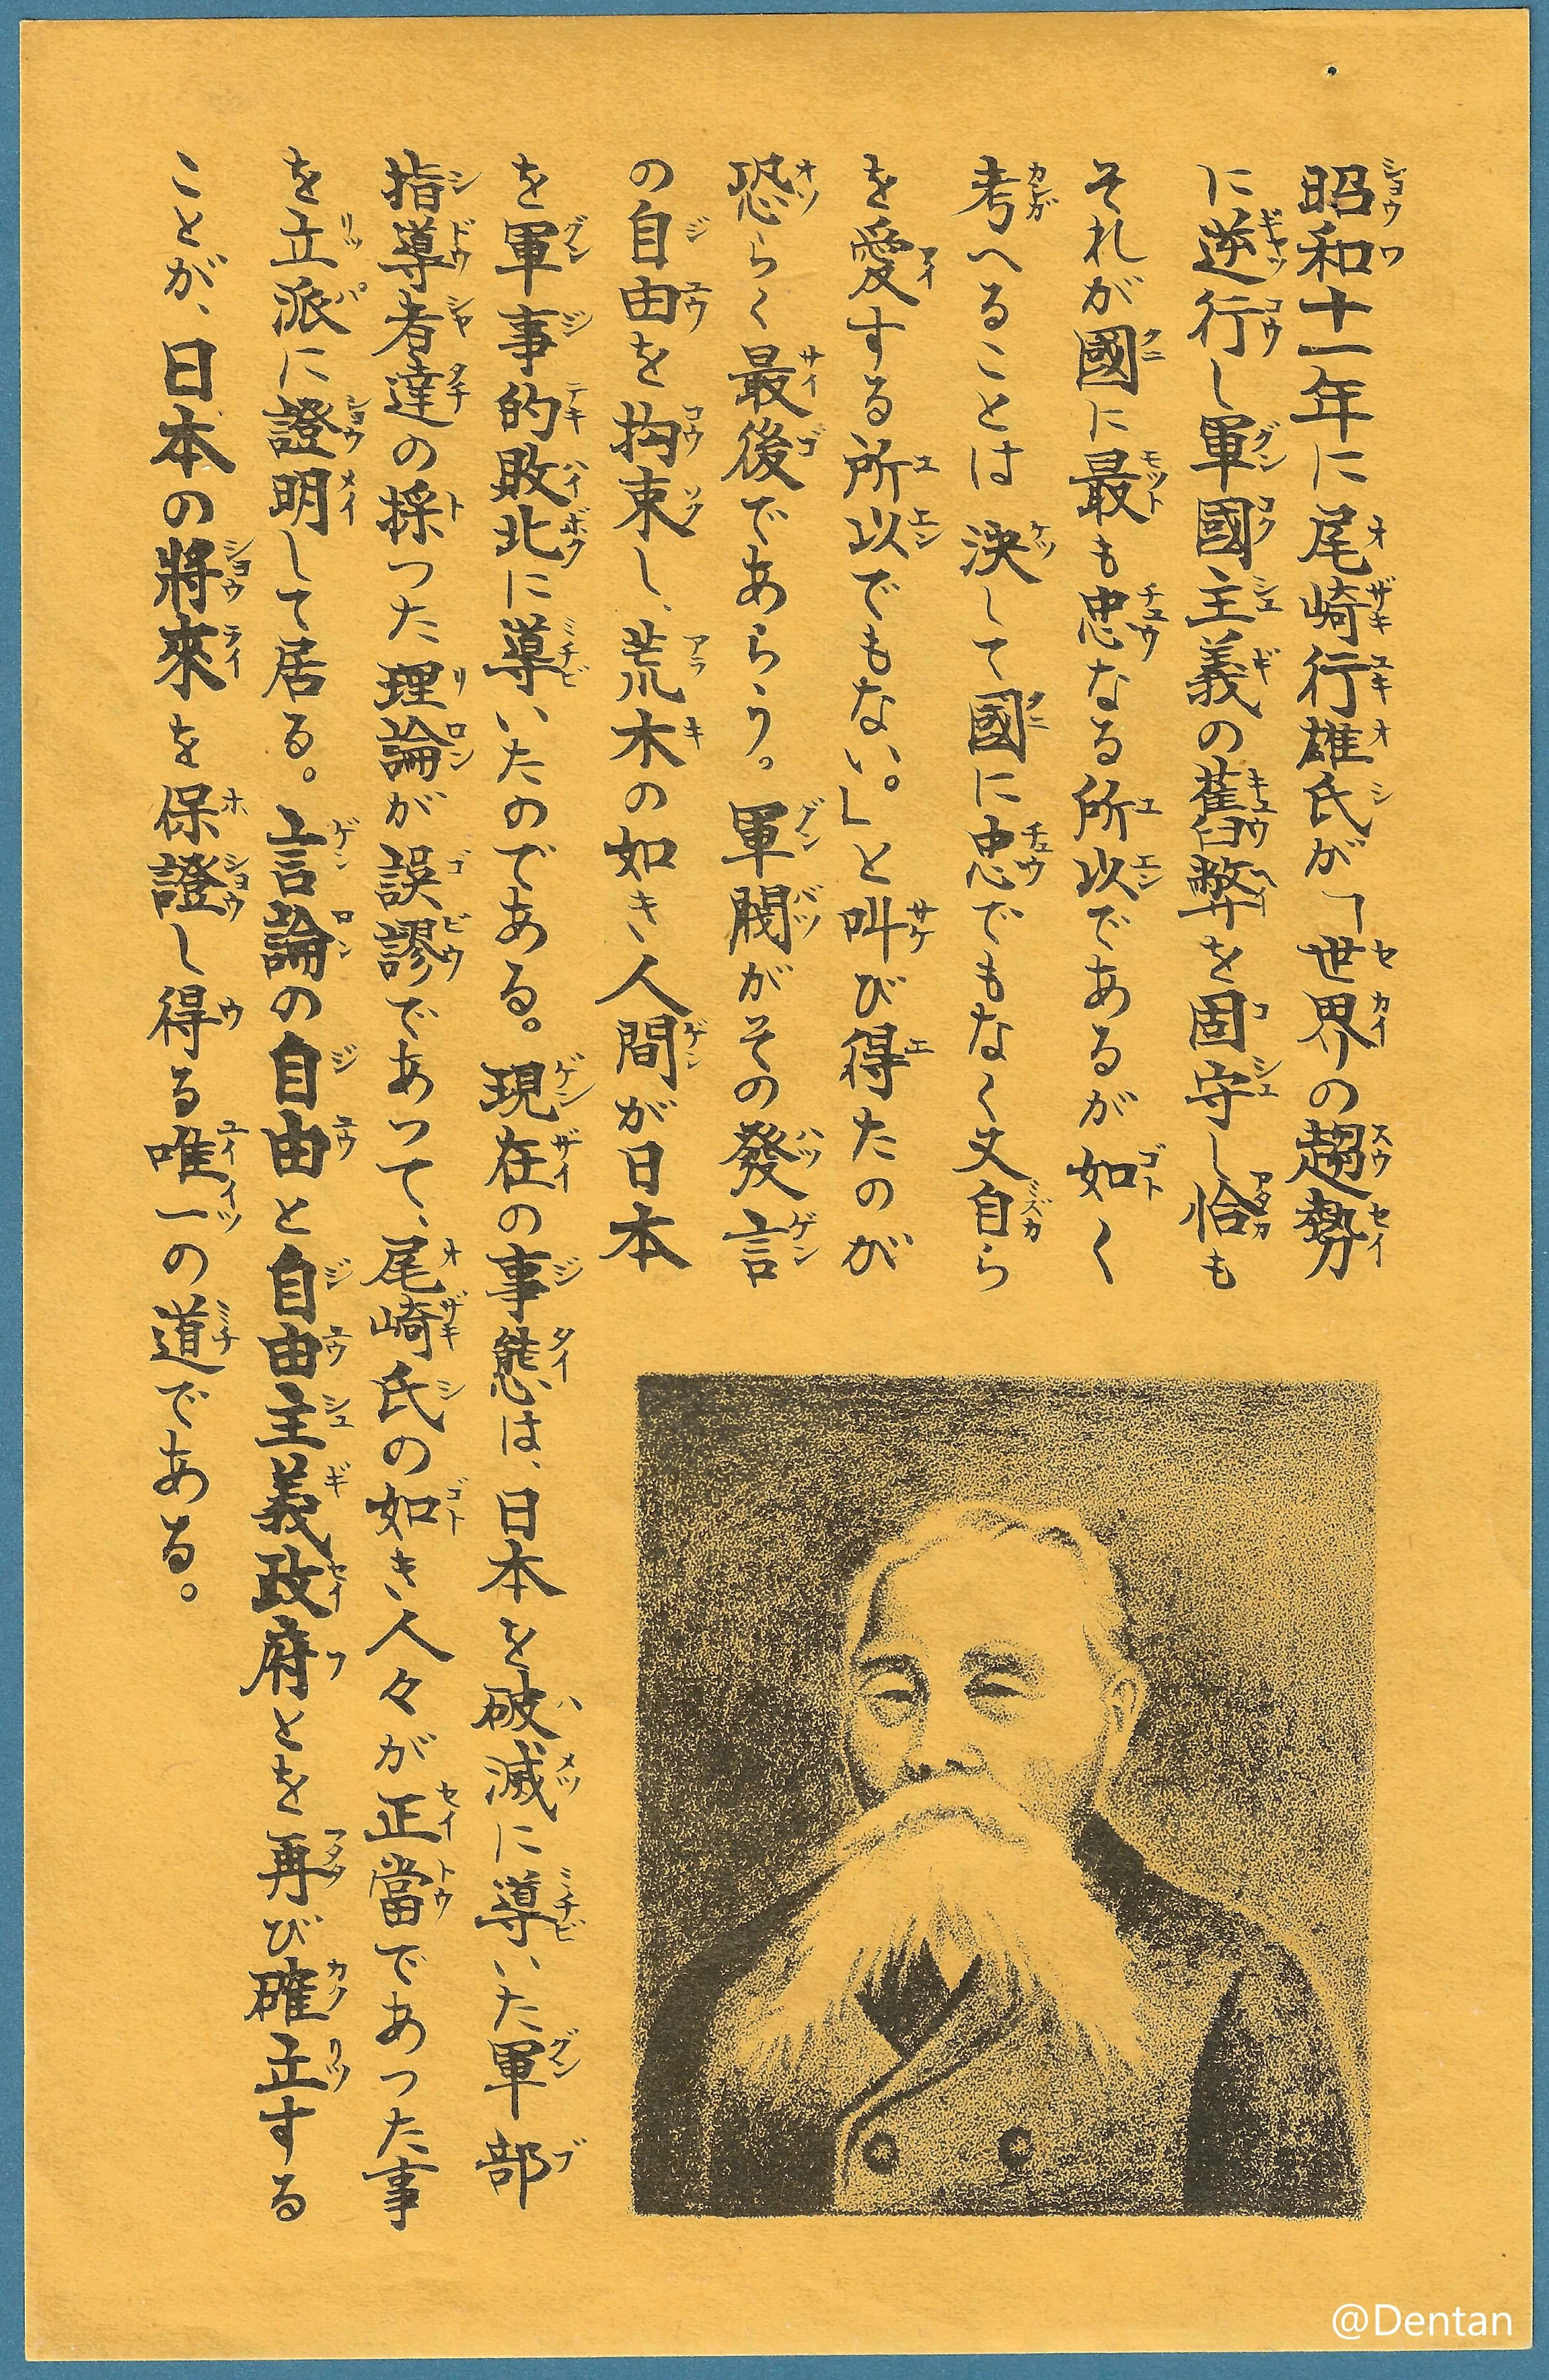 昭和十一年に尾崎行雄氏が「世界の趨勢
に逆行し軍國主義の舊弊を固守し恰も
それが國に最も忠なる所以であるが如く
考へることは決して國に忠でもなく又自ら
を愛する所以でもない。」と叫び得たのが
恐らく最後であらう。軍閥がその發言
の自由を拘束し、荒木の如き人間が日本
を軍事的敗北に導いたのである。現在の事態は、日本を破滅に導いた軍部
指導者達の採つた理論が誤謬であつて、尾崎氏の如き人々が正當であつた事
を立派に證明して居る。言論の自由と自由主義政府とを再び確立する
ことが、日本の將來を保證し得る唯一の道である。
@Dentan